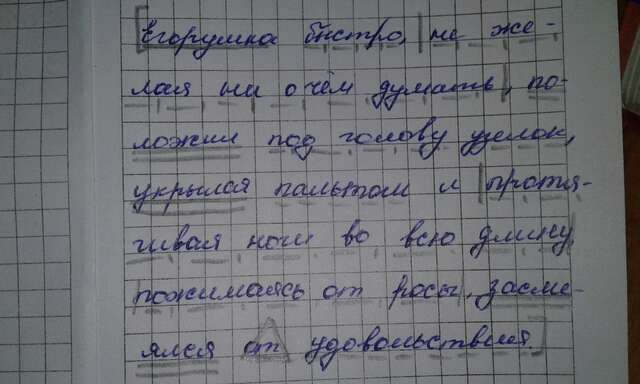 [Егорушка быстро, |не же-
лая ни о чём думать|, по-
ложил под голову узелок,
укрылся пальтом и |протя-
гивая ноги во всю длину|
пожимаясь от росы, засме-
ялся от удовольствия.]